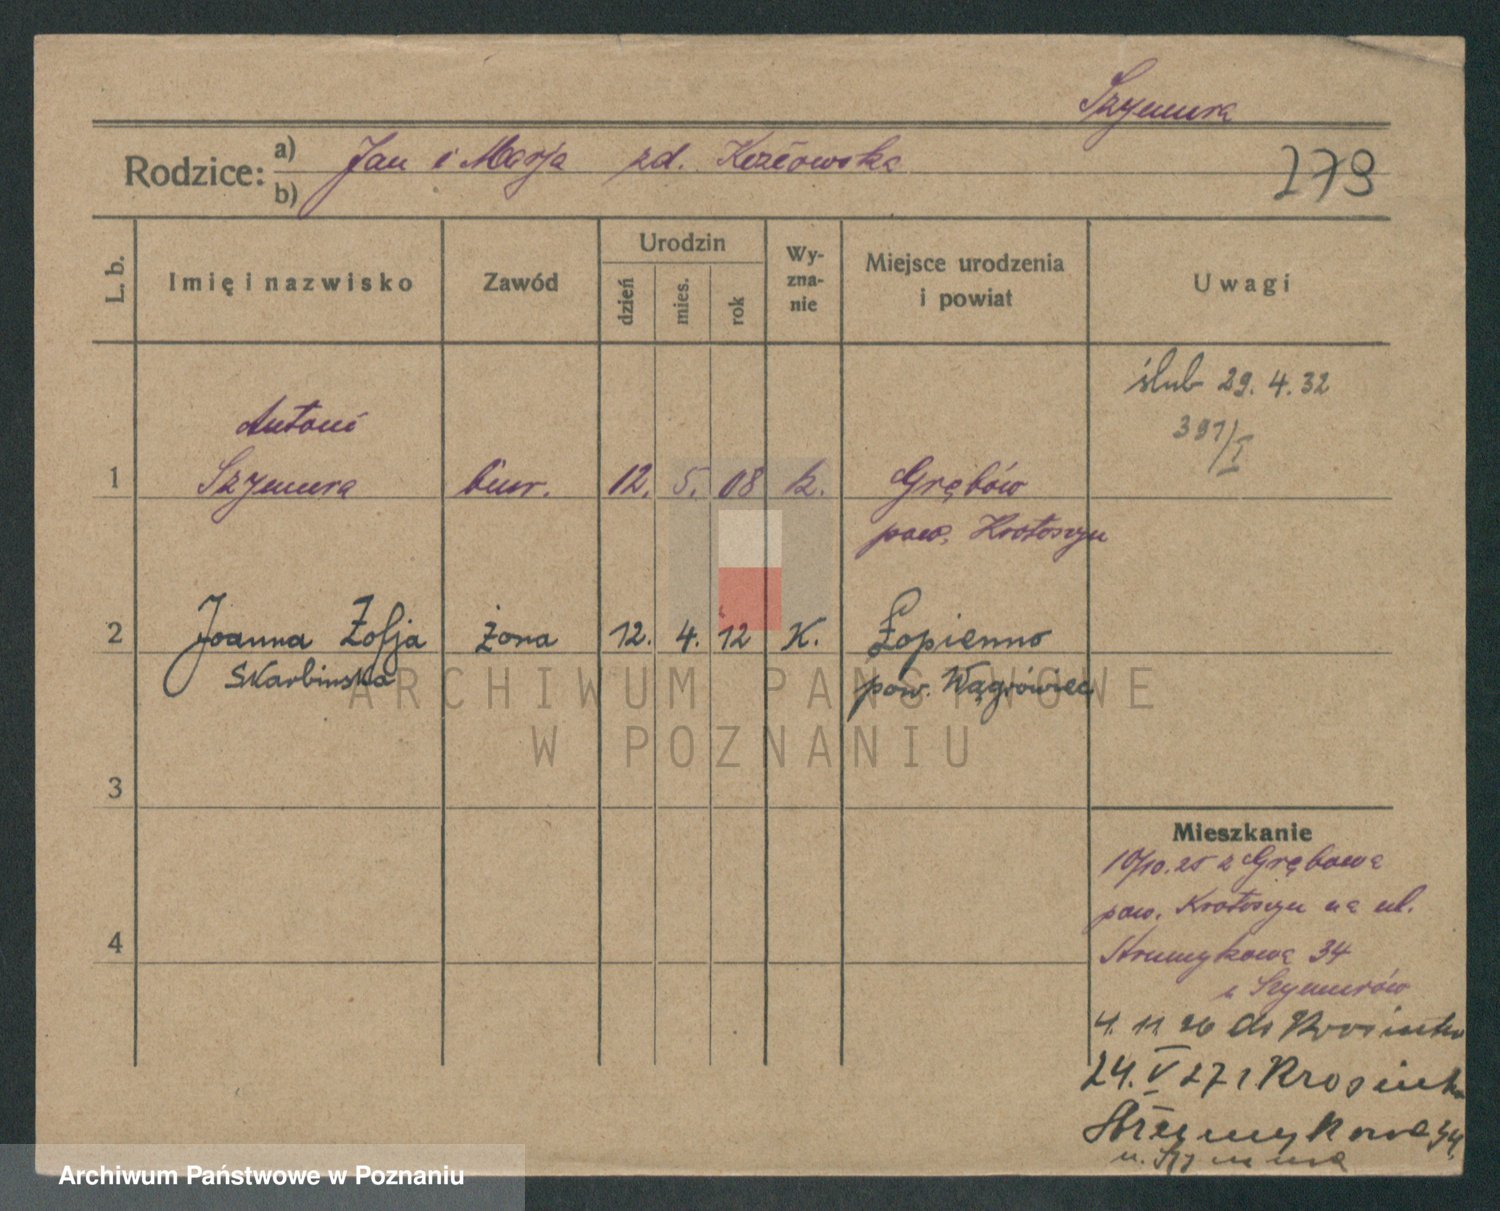 Szymura
Rodzice: a) Jan i Marja zd. Kozłowska
b)
279
L. b.
Imię i nazwisko
Zawód
Urodzin
dzień
mies.
rok
Wy-
zna-
nie
Miejsce urodzenia
i powiat
Uwagi
ślub 29. 4. 32
391/I
Antoni
1 Szymura biur. 12. 5. 08 k. Grębów
pow. Krotoszyn
2 Joanna Zofja żona 12. 4. 12 K. Łopienno
Skarbinska pow. Wągrówiec
ARCHIWUM PAŃSTWOWE
W POZNANIU
3
4
Mieszkanie
10/10. 25 z Grębowa
pow. Krotoszyn na ul.
Strumykowa 34
u Szymurów
4. 11 26 do Krosinka
24. V 27 z Krosinka
Strumykowa 34
u. Szymura
Archiwum Państwowe w Poznaniu